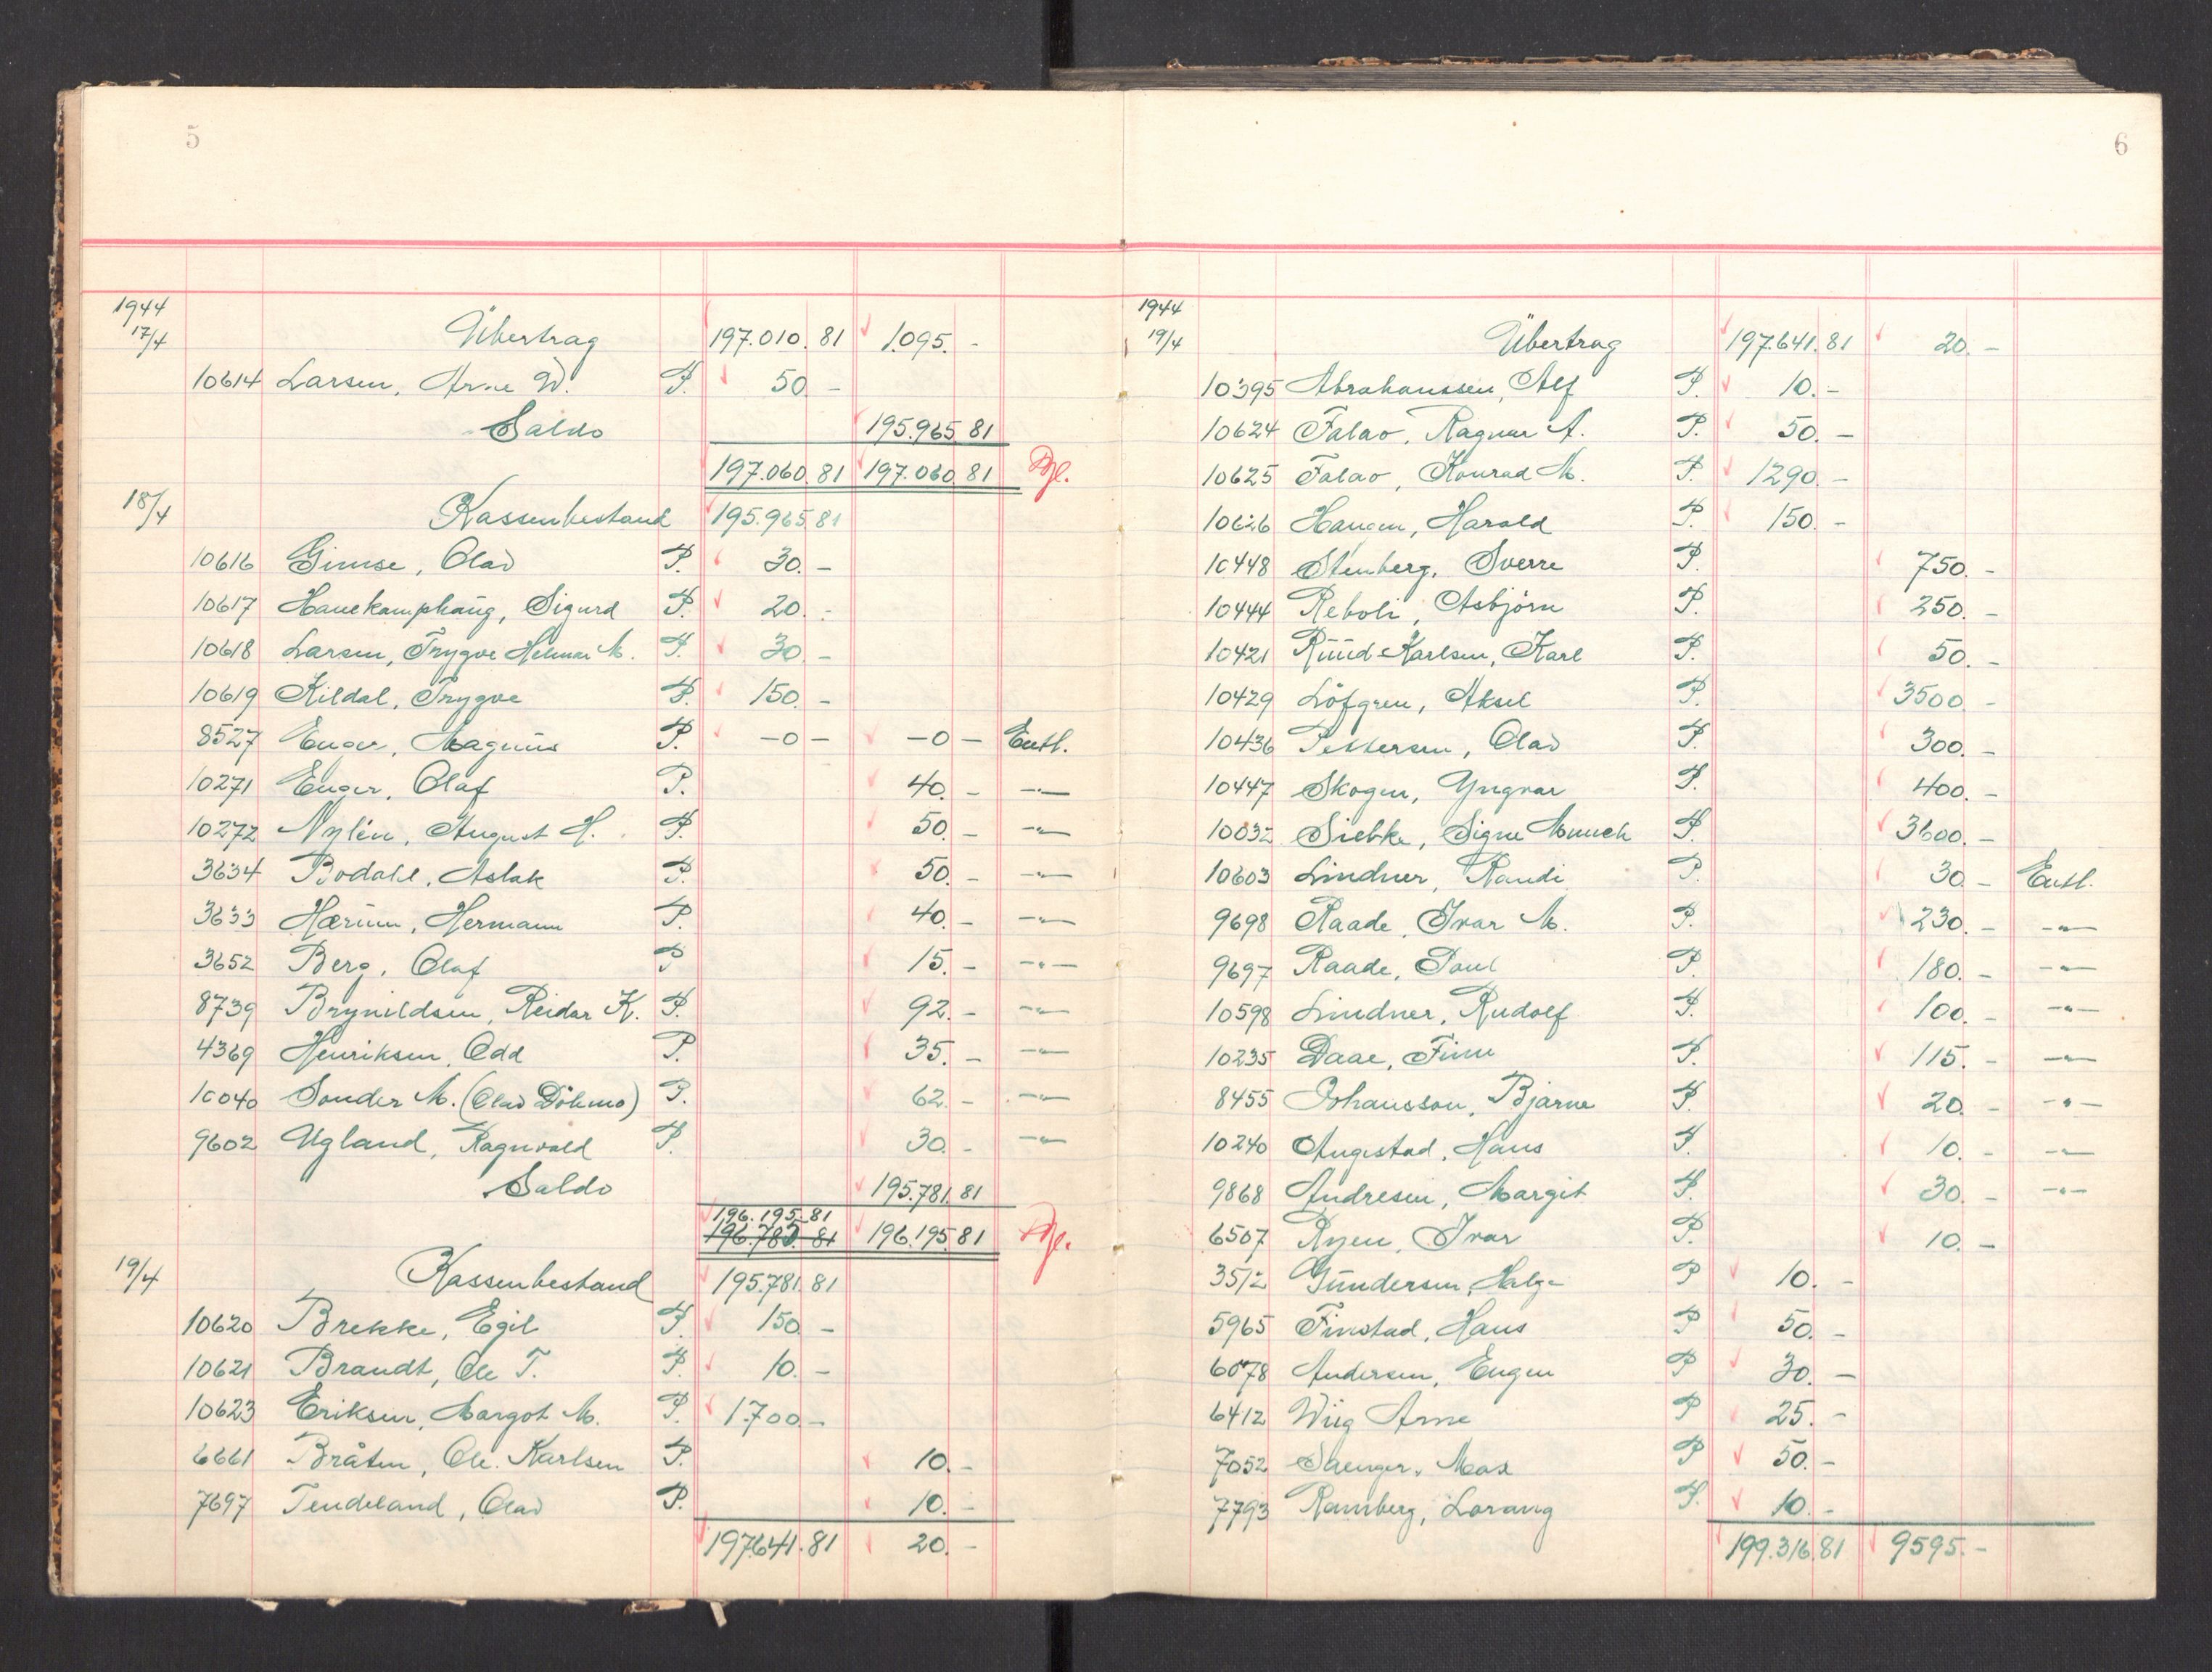 5
1944
17/4 Übertrag 197.010.81 1.095.-
10614 Larsen, Arne W. P. 50.-
Saldo 195.965.81
197.060.81 197.060.81
18/4 Kassenbestand 195.965.81
10616 Gimse, Olav P. 30.-
10617 Hanekamphaug, Sigurd P. 20.-
10618 Larsen, Trygve Helmar M. P. 30.-
10619 Kildal, Trygve P. 150.-
8527 Enger, Magnus P. -0- -0- Entl.
10271 Enger, Olaf P. 40.- -"-
10272 Nylén, August H. P. 50.- -"-
3634 Bodahl, Aslak P. 50.- -"-
3633 Hærum, Hermann P. 40.- -"-
3652 Berg, Olaf P 15.- -"-
8739 Brynildsen, Reidar K. P. 92.- -"-
4369 Henriksen, Odd P. 35.- -"-
10040 Sonder M. (Olav Döhmo) P. 62.- -"-
9602 Ugland, Ragnvald P. 30.- -"-
Saldo 195.781.81
196.195.81
196.785.81 196.195.81
19/4 Kassenbestand 195.781.81
10620 Brekke, Egil P. 150.-
10621 Brandt, Ole T. P. 10.-
10623 Eriksen, Margot M. P. 1.700.-
6661 Bråten, Ole Karlsen P. 10.-
7697 Tendeland, Olav P. 10.-
197.641.81 20.-
6
1944
19/4 Übertrag 197.641.81 20.-
10395 Abrahamssen, Alf P. 10.-
10624 Falao, Ragnar A. P. 50.-
10625 Falao, Konrad M. P. 1290.-
10626 Haugen, Harald P. 150.-
10448 Stenberg, Sverre P. 750.-
10444 Reboli, Asbjörn P. 250.-
10421 Ruud-Karlsen, Karl P. 50.-
10429 Löfgren, Aksel P. 3500.-
10436 Pettersen, Olav P. 300.-
10447 Skogen, Yngvar P. 400.-
10032 Siebke, Signe Munch P. 3600.-
10603 Lindner, Randi P. 30.- Entl.
9698 Raade, Ivar M. P. 230.- -"-
9697 Raade, Poul P. 180.- -"-
10598 Lindner, Rudolf P. 100.- -"-
10235 Daae, Finn P. 115.- -"-
8455 Johansson, Bjarne P. 20.- -"-
10240 Augestad, Hans P. 10.- -"-
9868 Andresen, Margit P. 30.- -"-
6507 Ryen, Ivar P. 10.-
3512 Gundersen, Helge P 10.-
5965 Finstad, Hans P 50.-
6078 Andersen, Eugen P 30.-
6412 Wiig Arne P 25.-
7052 Saenger, Max P 50.-
7793 Ramberg, Lorang P. 10.-
199.316.81 9595.-